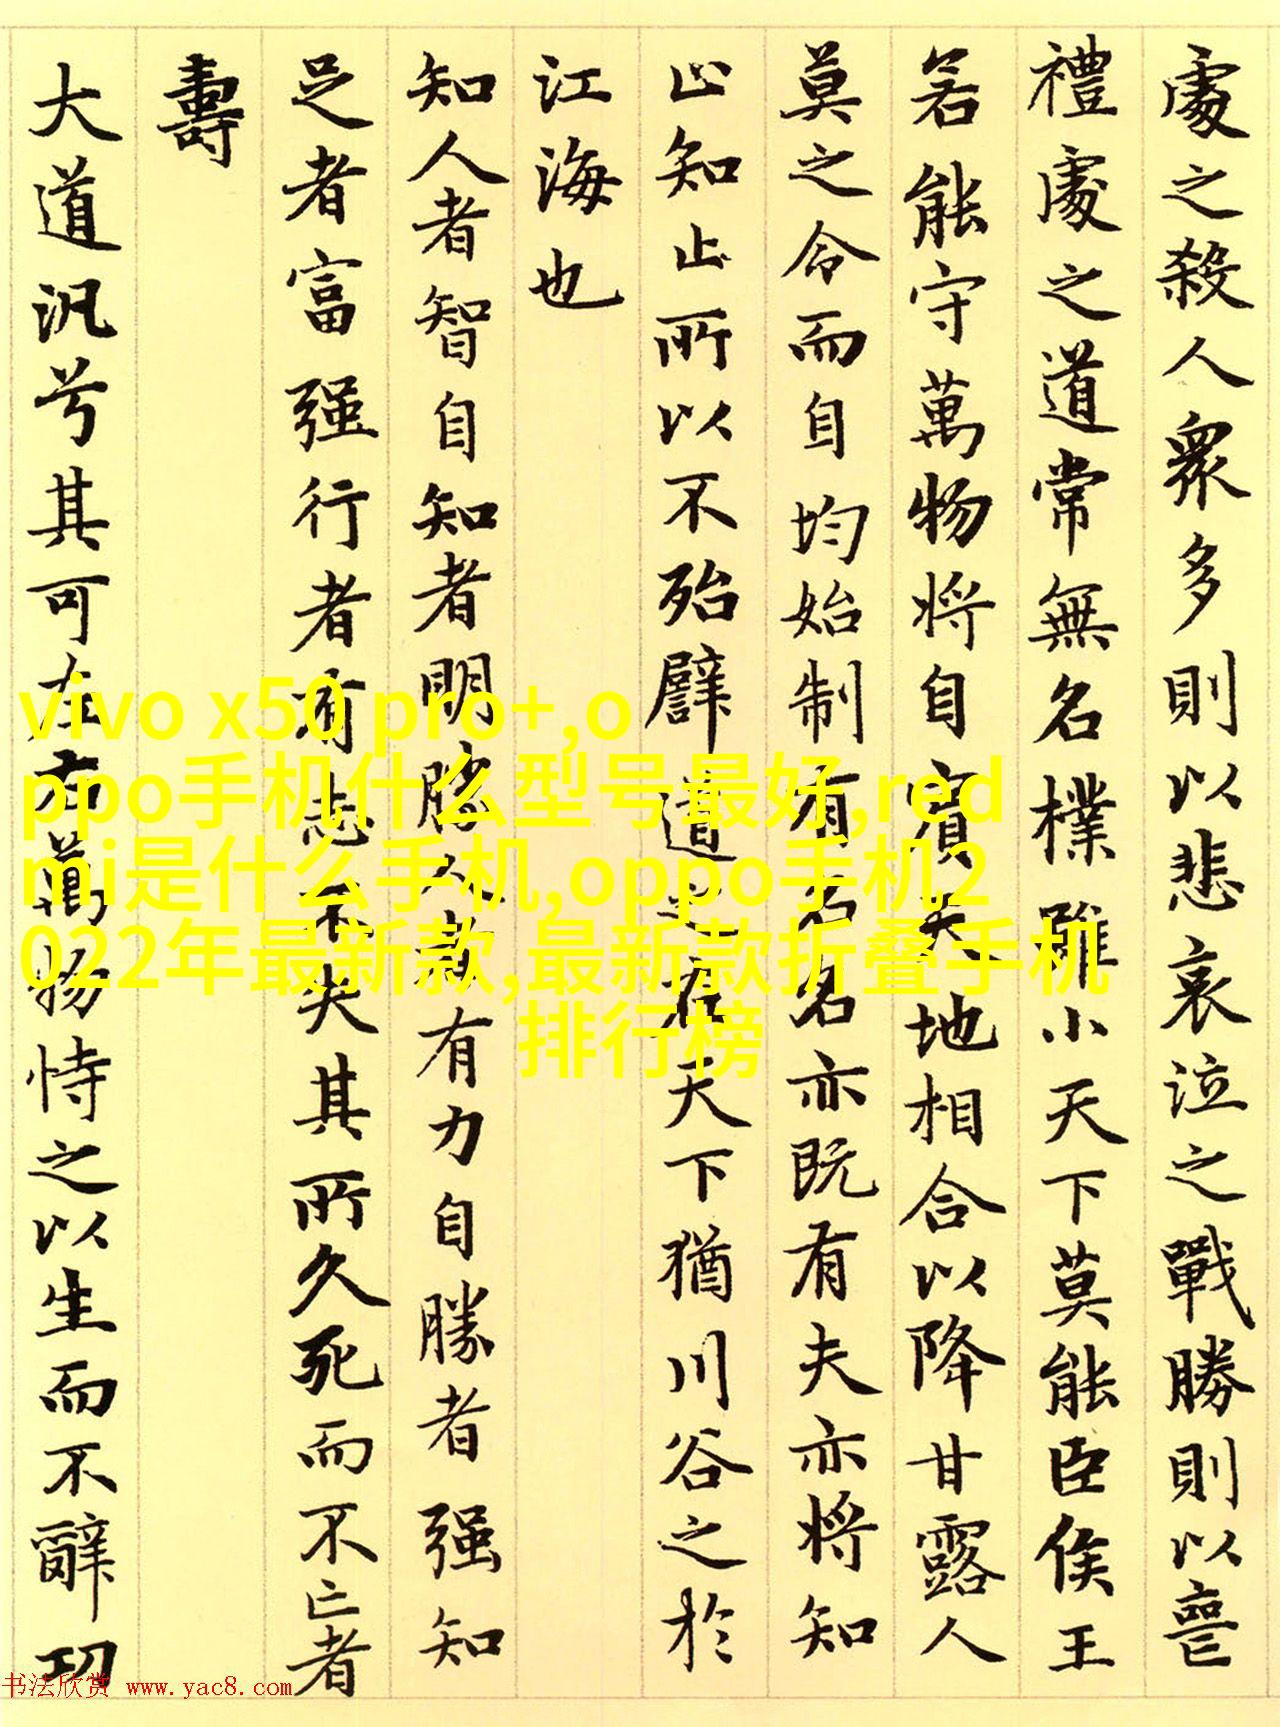 處之殺人衆多則以悲哀泣之戰勝則以喪
禮處之道常無名樸雖小天下莫能臣侯王
若能守萬物將自賓天地相合以降甘露人
莫之令而自均始制有名名亦既有夫亦將知
止知止所以不殆譬道之在天下猶川谷之於
江海也
知人者智自知者明勝人者有力自勝者强知
足者富强行者有志不失其所久死而不亡者
壽
大道汎兮其可左右萬物恃之以生而不辭功
vivo x50 pro+,o
ppo手机什么型号最好,red
mi是什么手机,oppo手机2
022年最新款,最新款折叠手机
排行榜
书法欣赏 www.yac8.com